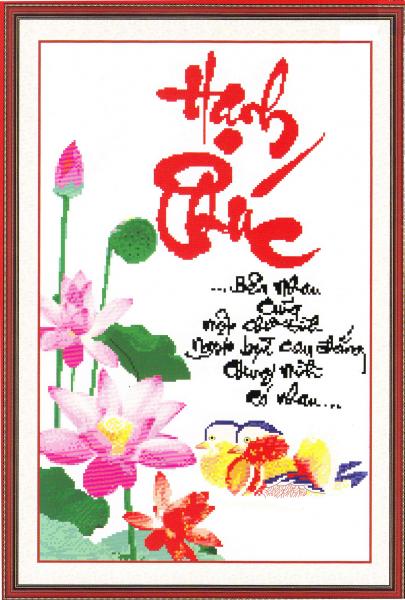 Hạnh
Phúc
...Bên nhau
cùng
một chữ tình
Ngọt bùi cay đắng
Chúng mình
có nhau...